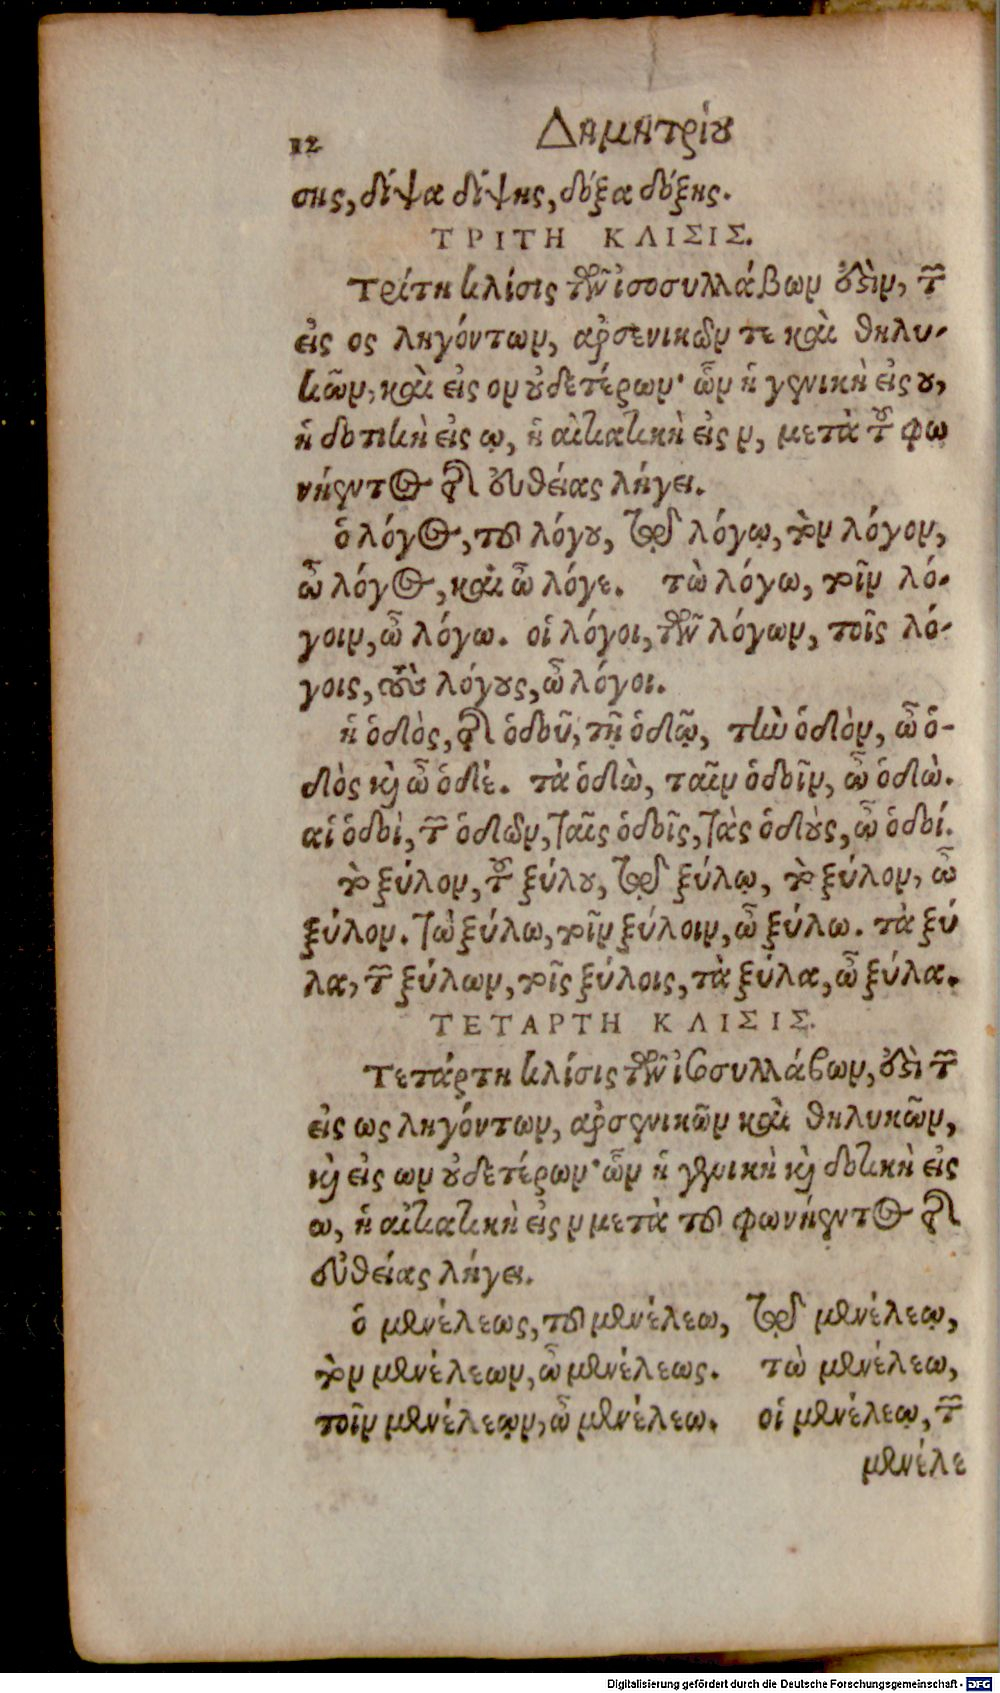 12 Δημητρίου
σης, δίψα δίψης, δόξα δόξης.
ΤΡΙΤΗ ΚΛΙΣΙΣ.
Τρίτη κλίσις τῶν ἰσοσυλλάβων ἐστὶν, τῶν
εἰς ος ληγόντων, ἀρσενικῶν τε καὶ θηλυ-
κῶν, καὶ εἰς ον οὐδετέρων· ὧν ἡ γενικὴ εἰς ου,
ἡ δοτικὴ εἰς ῳ, ἡ αἰτιατικὴ εἰς ν, μετὰ τοῦ φω
νήεντος τῆς εὐθείας λήγει.
ὁ λόγος, τοῦ λόγου, τῷ λόγῳ, τὸν λόγον,
ὦ λόγος, καὶ ὦ λόγε. τὼ λόγω, τοῖν λό-
γοιν, ὦ λόγω. οἱ λόγοι, τῶν λόγων, τοῖς λό-
γοις, τοὺς λόγους, ὦ λόγοι.
ἡ ὁδὸς, τῆς ὁδοῦ, τῇ ὁδῷ, τὴν ὁδὸν, ὦ ὁ-
δὸς καὶ ὦ ὁδέ. τὰ ὁδὼ, ταῖν ὁδοῖν, ὦ ὁδὼ.
αἱ ὁδοὶ, τῶν ὁδῶν, ταῖς ὁδοῖς, τὰς ὁδοὺς, ὦ ὁδοί.
τὸ ξύλον, τοῦ ξύλου, τῷ ξύλῳ, τὸ ξύλον, ὦ
ξύλον. τὼ ξύλω, τοῖν ξύλοιν, ὦ ξύλω. τὰ ξύ
λα, τῶν ξύλων, τοῖς ξύλοις, τὰ ξύλα, ὦ ξύλα.
ΤΕΤΑΡΤΗ ΚΛΙΣΙΣ.
Τετάρτη κλίσις τῶν ἰσοσυλλάβων, ἐστὶ τῶν
εἰς ως ληγόντων, ἀρσενικῶν καὶ θηλυκῶν,
καὶ εἰς ων οὐδετέρων· ὧν ἡ γενικὴ καὶ δοτικὴ εἰς
ω, ἡ αἰτιατικὴ εἰς ν μετὰ τοῦ φωνήεντος τῆς
εὐθείας λήγει.
ὁ μενέλεως, τοῦ μενέλεω, τῷ μενέλεῳ,
τὸν μενέλεων, ὦ μενέλεως. τὼ μενέλεω,
τοῖν μενέλεῳν, ὦ μενέλεω. οἱ μενέλεῳ, τῶν
μενέλε
Digitalisierung gefördert durch die Deutsche Forschungsgemeinschaft - DFG